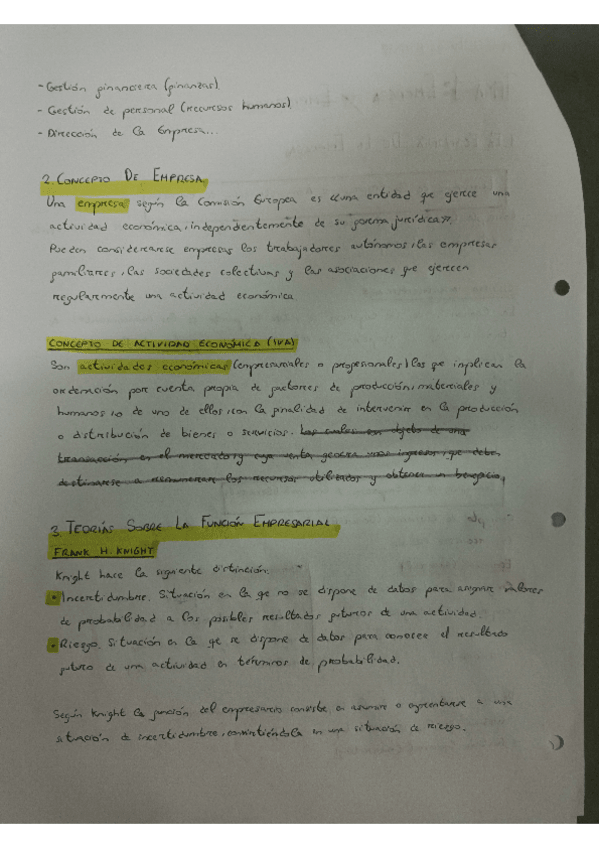 - Gestión financiera (finanzas)
- Gestión de personal (recursos humanos)
- Dirección de la Empresa...
2. CONCEPTO DE EMPRESA
Una empresa según la Comisión Europea es «una entidad que ejerce una
actividad económica, independientemente de su forma jurídica».
Pueden considerarse empresas los trabajadores autónomos, las empresas
familiares, las sociedades colectivas y las asociaciones que ejercen
regularmente una actividad económica.
CONCEPTO DE ACTIVIDAD ECONÓMICA (IVA)
Son actividades económicas (empresariales o profesionales) las que implican la
ordenación por cuenta propia de factores de producción, materiales y
humanos, o de uno de ellos, con la finalidad de intervenir en la producción
o distribución de bienes o servicios. Las cuales son objeto de una
transacción en el mercado, y cuya venta genera unos ingresos, que deben
destinarse a remunerar los recursos utilizados y obtener un beneficio,
3. TEORÍAS SOBRE LA FUNCIÓN EMPRESARIAL
FRANK H. KNIGHT
Knight hace la siguiente distinción:
• Incertidumbre. Situación en la qe no se dispone de datos para asignar valores
de probabilidad a los posibles resultados futuros de una actividad
• Riesgo. Situación en la qe se dispone de datos para conocer el resultado
futuro de una actividad en términos de probabilidad.
Según Knight la función del empresario consiste en asumir o enfrentarse a una
situación de incertidumbre, convirtiéndola en una situación de riesgo.